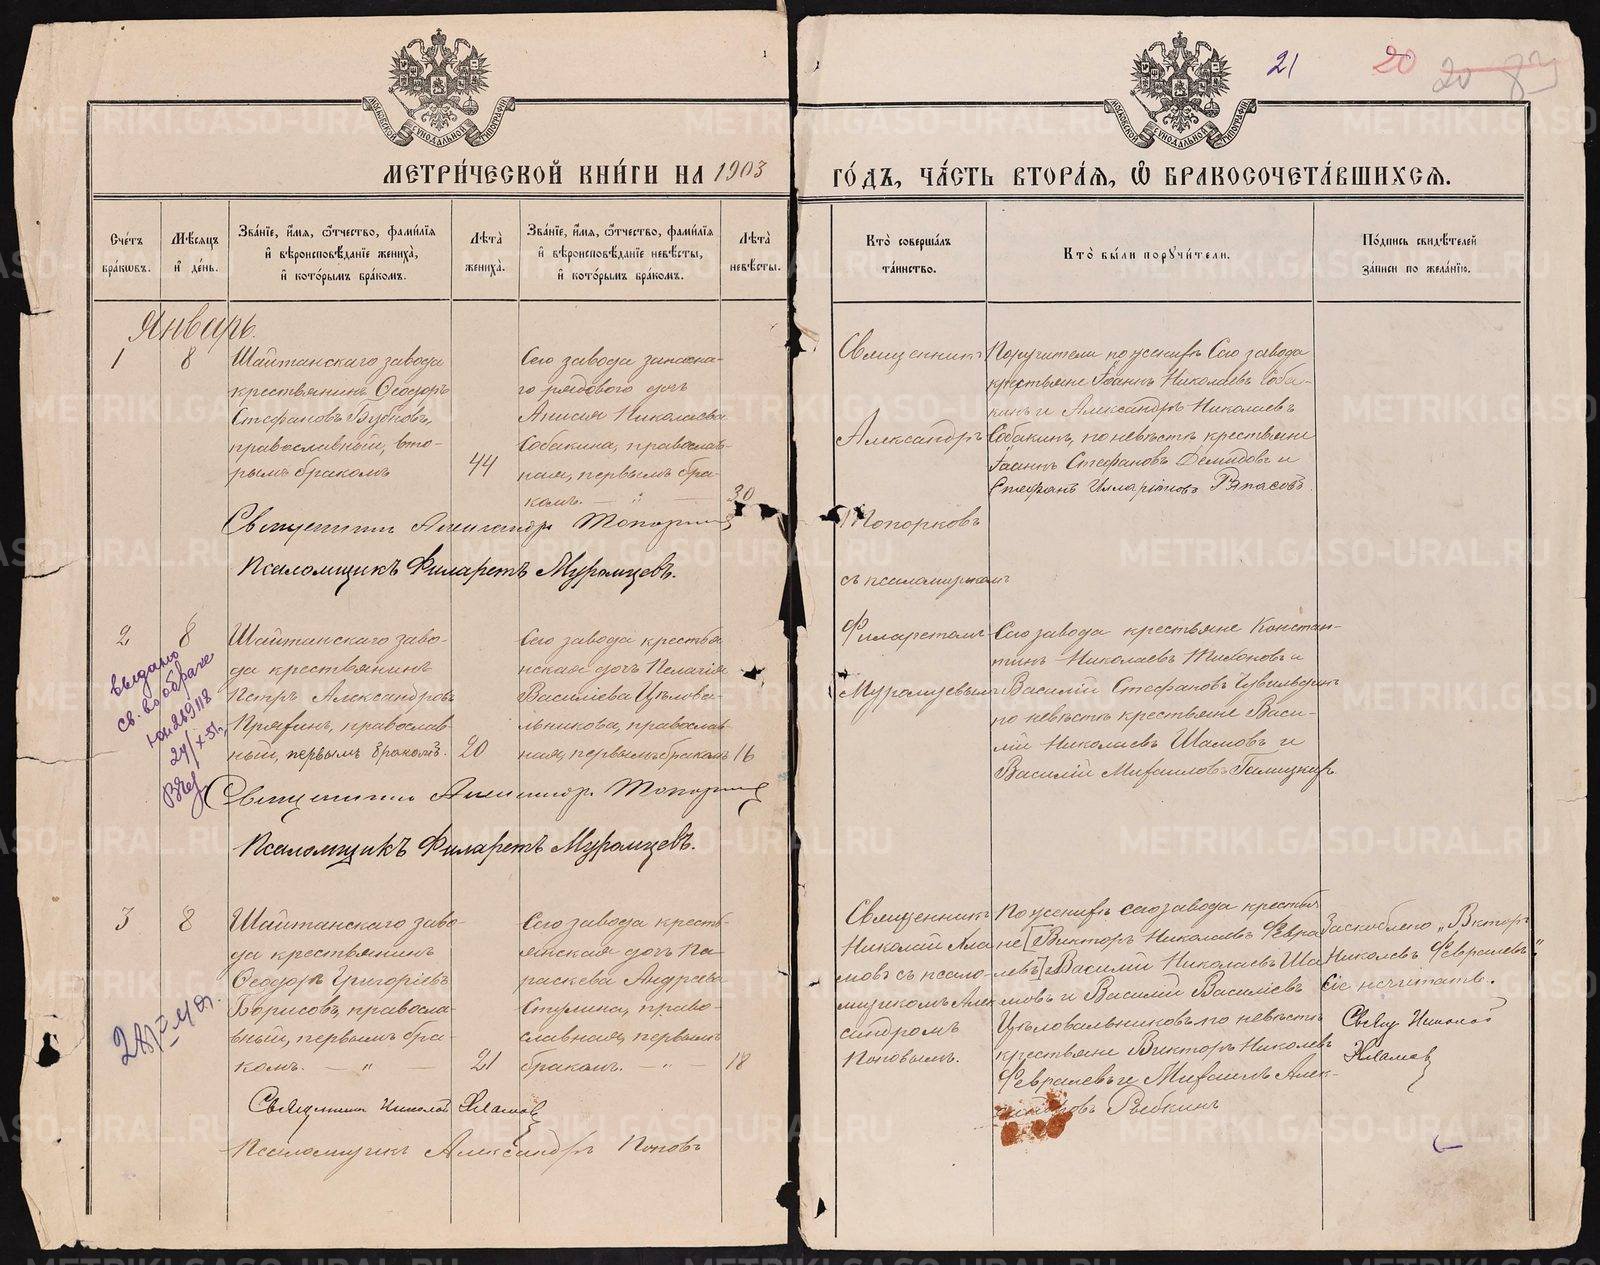 21 20 20 83
МЕТРИ́ЧЕСКОЙ КНИ́ГИ НА 1903
ГО́ДЪ, ЧА́СТЬ ВТОРА́Я, Ѽ БРАКОСОЧЕТА́ВШИХСЯ.
Сче́тъ бра́кѡвъ.
Мѣ́сяцъ и́ де́нь.
Зва́нїе, и́мя, ѻ́тчество, фами́лїя
и́ вѣроисповѣ́данїе жениха̀,
и́ кото́рымъ бра́комъ.
Лѣ́та жениха̀.
Зва́нїе, и́мя, ѻ́тчество, фами́лїя
и́ вѣроисповѣ́данїе невѣ́сты,
и́ кото́рымъ бра́комъ.
Лѣ́та невѣ́сты.
Кто̀ соверша́лъ
та́инство.
Кто̀ бы́ли пору́чители.
По́дпись свидѣ́телей
за́писи по жела́нїю.
Январь.
1
8
Шайтанскаго завода
крестьянинъ Ѳеодоръ
Стефановъ Бубновъ,
православный, вто-
рымъ бракомъ
44
Сего завода запасна-
го рядового дочь
Анисия Николаева
Собакина, православ-
ная, первымъ бра-
комъ. — „ —
30
Священникъ
Александръ
Топорковъ
съ псаломщикомъ
Филаретомъ
Муромцевымъ
Поручители по женихѣ Сего завода
крестьяне Іоаннъ Николаевъ Соба-
кинъ и Александръ Николаевъ
Собакинъ, по невѣстѣ крестьяне
Іоаннъ Стефановъ Демидовъ и
Стефанъ Илларіоновъ Рятасовъ.
Священникъ Александръ Топорковъ
Псаломщикъ Филаретъ Муромцевъ.
2
8
выдано
св. о браке
24/X-51
Шайтанскаго заво-
да крестьянинъ
Петръ Александровъ
Пряфинъ, православ-
ный, первымъ бракомъ.
20
Сего завода крестья
нская дочь Пелагія
Василіева Цѣлова-
льникова, православ-
ная, первымъ бракомъ
16
Сего завода крестьяне Констан-
тинъ Николаевъ Тихоновъ и
Василій Стефановъ Чувильдинъ
по невѣстѣ крестьяне Васи-
лій Николаевъ Шамовъ и
Василій Михаиловъ Галицкихъ.
Священникъ Александръ Топорковъ
Псаломщикъ Филаретъ Муромцевъ.
3
8
Шайтанскаго заво-
да крестьянинъ
Ѳеодоръ Григоріевъ
Борисовъ, правосла-
вный, первымъ бра-
комъ. — „ —
21
Сего завода кресть-
янская дочь Па-
раскева Андреева
Стулина, право-
славная, первымъ
бракомъ. — „ —
18
Священникъ
Николай Хла
мовъ съ псало-
мщикомъ Алек
сандромъ
Поповымъ.
По женихѣ сего завода крестья
не [Викторъ Николаевъ Февра
левъ] и Василій Николаевъ Ша
мовъ и Василій Василіевъ
Цѣловальниковъ, по невѣстѣ
крестьяне Викторъ Николаевъ
Февралевъ и Михаилъ Алек-
сандровъ Рябкинъ
Заскоблено „Викторъ
Николаевъ Февралевъ“
Сіе не читать.
Свящ Николай
Хламов
Священникъ Николай Хламов
Псаломщикъ Александръ Поповъ
METRIKI.GASO-URAL.RU